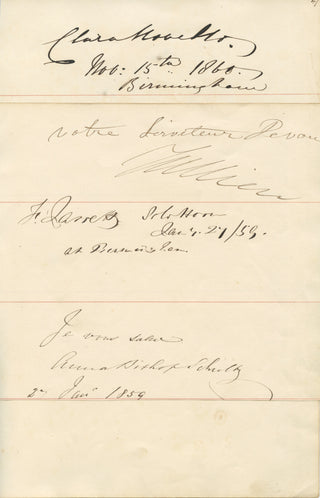 Clara Novello.
Nov: 15th 1860.
Birmingham
votre Serviteur Devoué
Jullien
F. Jarrett Solo Horn
Jany. 27/59.
at Birmingham
Je vous salue
Anna Bishop Schultz
27 Jany 1859